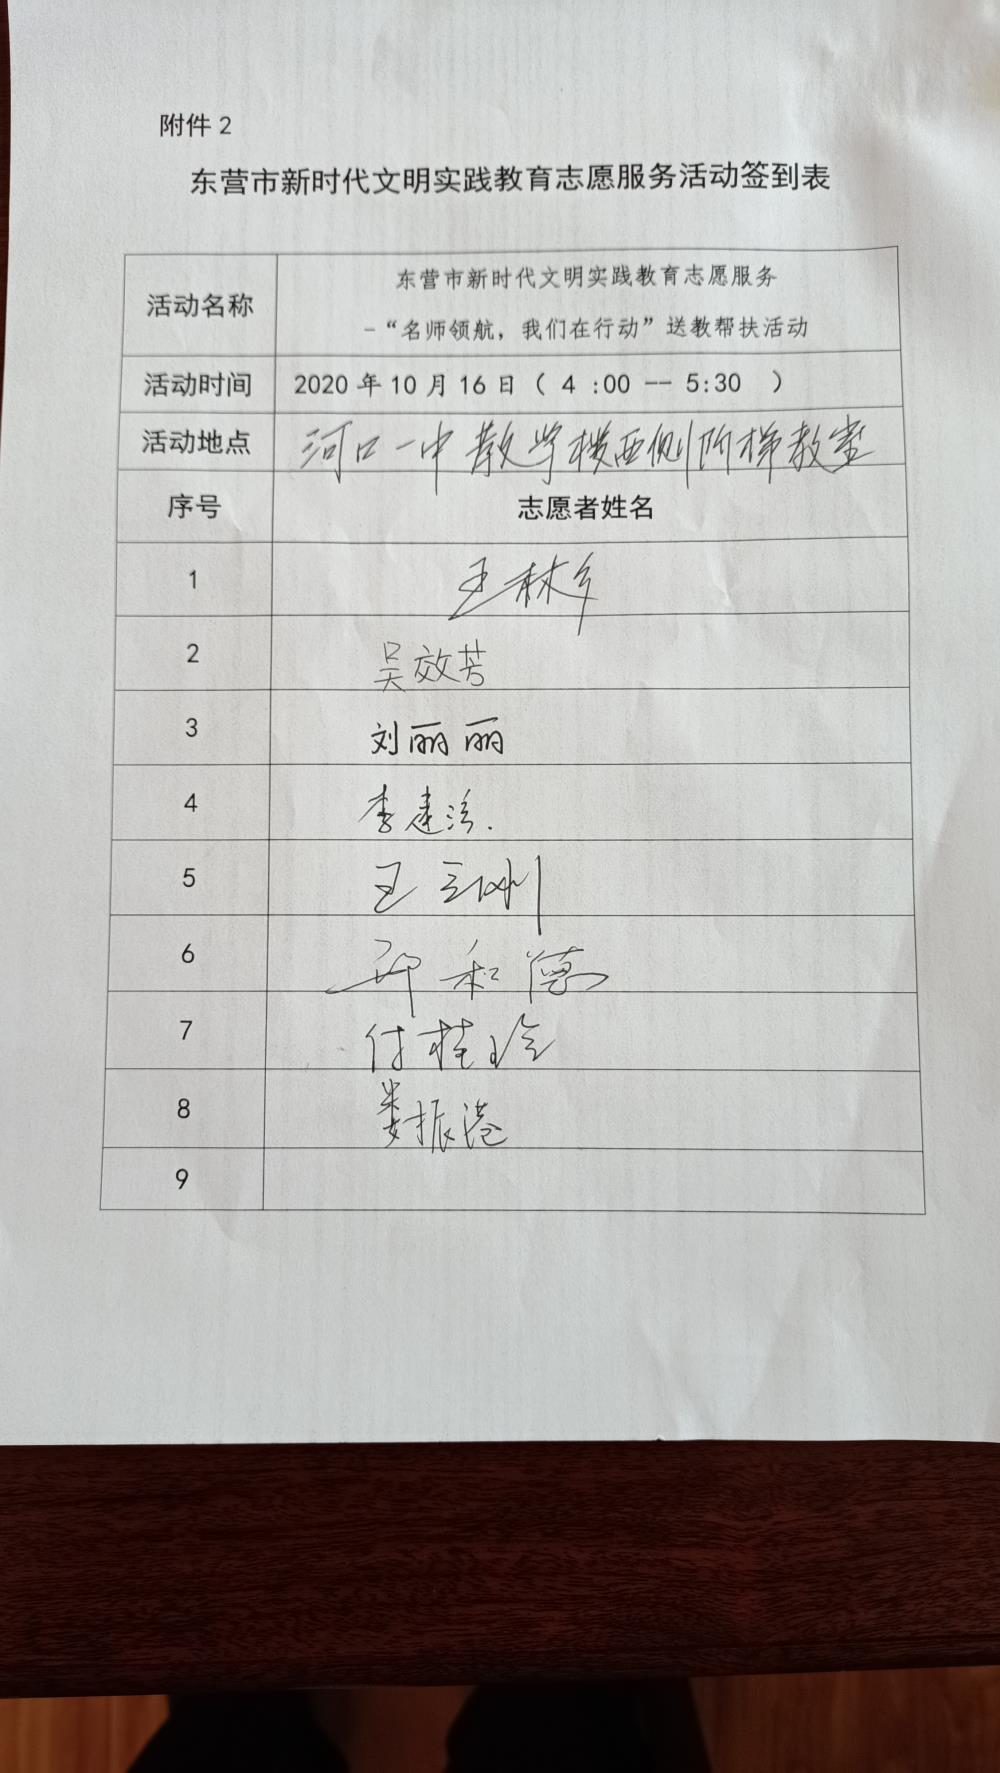 附件 2
东营市新时代文明实践教育志愿服务活动签到表
活动名称
东营市新时代文明实践教育志愿服务
-“名师领航，我们在行动”送教帮扶活动
活动时间 2020 年 10 月 16 日（ 4 :00 -- 5:30 ）
活动地点 河口一中教学楼西侧阶梯教室
序号 志愿者姓名
1 王林
2 吴效芳
3 刘丽丽
4 李建
5 王 刚
6 和德
7 付桂玲
8 娄振港
9